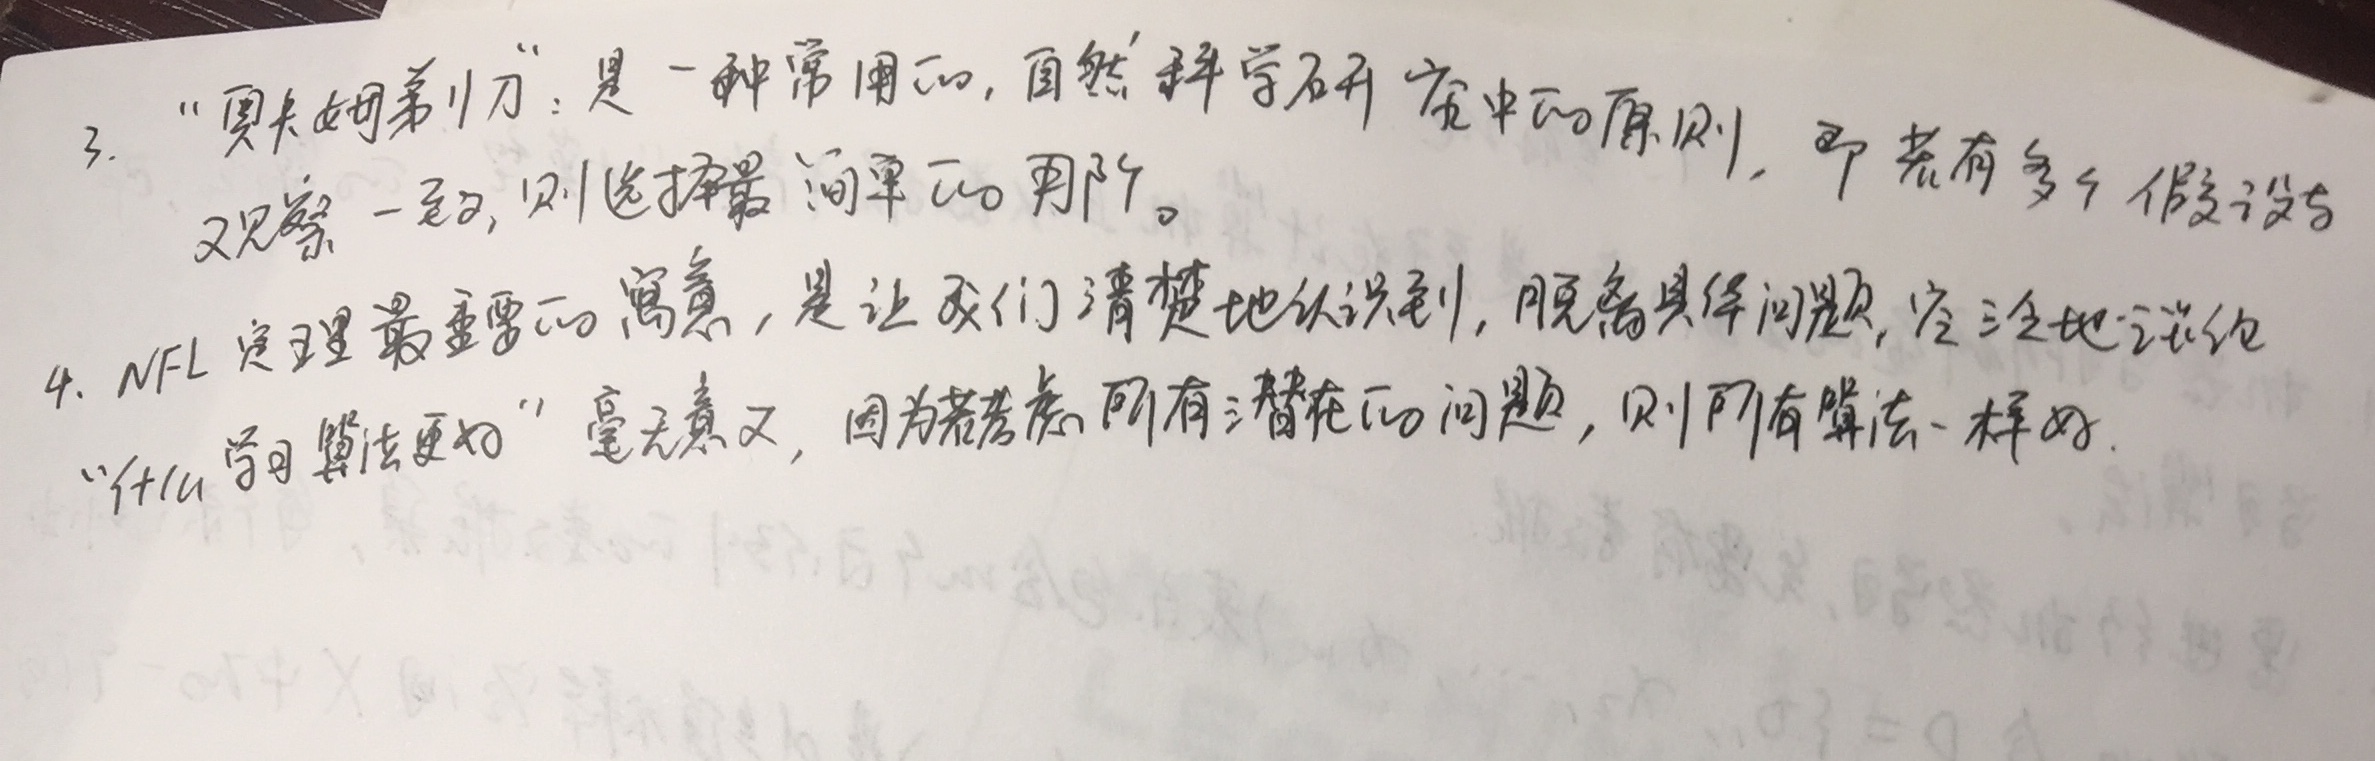 3. “奥卡姆剃刀”：是一种常用的，自然科学研究中的原则，即若有多个假设与
观察一致，则选择最简单的那个。
4. NFL 定理最重要的寓意，是让我们清楚地认识到，脱离具体问题，空泛地谈论
“什么学习算法更好”毫无意义，因为若考虑所有潜在的问题，则所有算法一样好.